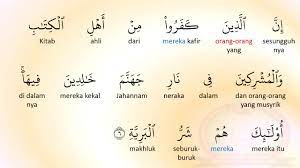 إِنَّ ٱلَّذِينَ كَفَرُوا۟ مِنْ أَهْلِ ٱلْكِتَٰبِ
sesungguh nya orang-orang yang mereka kafir dari ahli Kitab
وَٱلْمُشْرِكِينَ فِى نَارِ جَهَنَّمَ خَٰلِدِينَ فِيهَآ ۚ
dan orang-orang yang musyrik dalam neraka Jahannam mereka kekal di dalam nya
أُو۟لَٰٓئِكَ هُمْ شَرُّ ٱلْبَرِيَّةِ ٦
mereka itu mereka seburuk-buruk makhluk